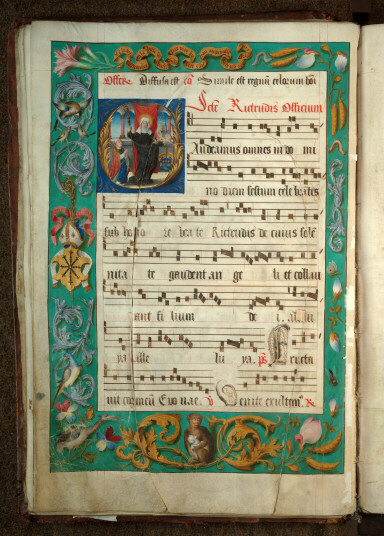 Offre Diffusa est co Simile est regnū celorum hoī
Sctē Rictrudis Officium
Gaudeamus omnes in do mi
no diem festum cele brātes
sub ho no re bea te Rictrudis de cuius solē
nita te gaudent an ge li et collau
dant fi lium de i. al le lu
ya. alle lu ya. ps Eructa
uit cor meū Euo uae. V Venite exultem9. R